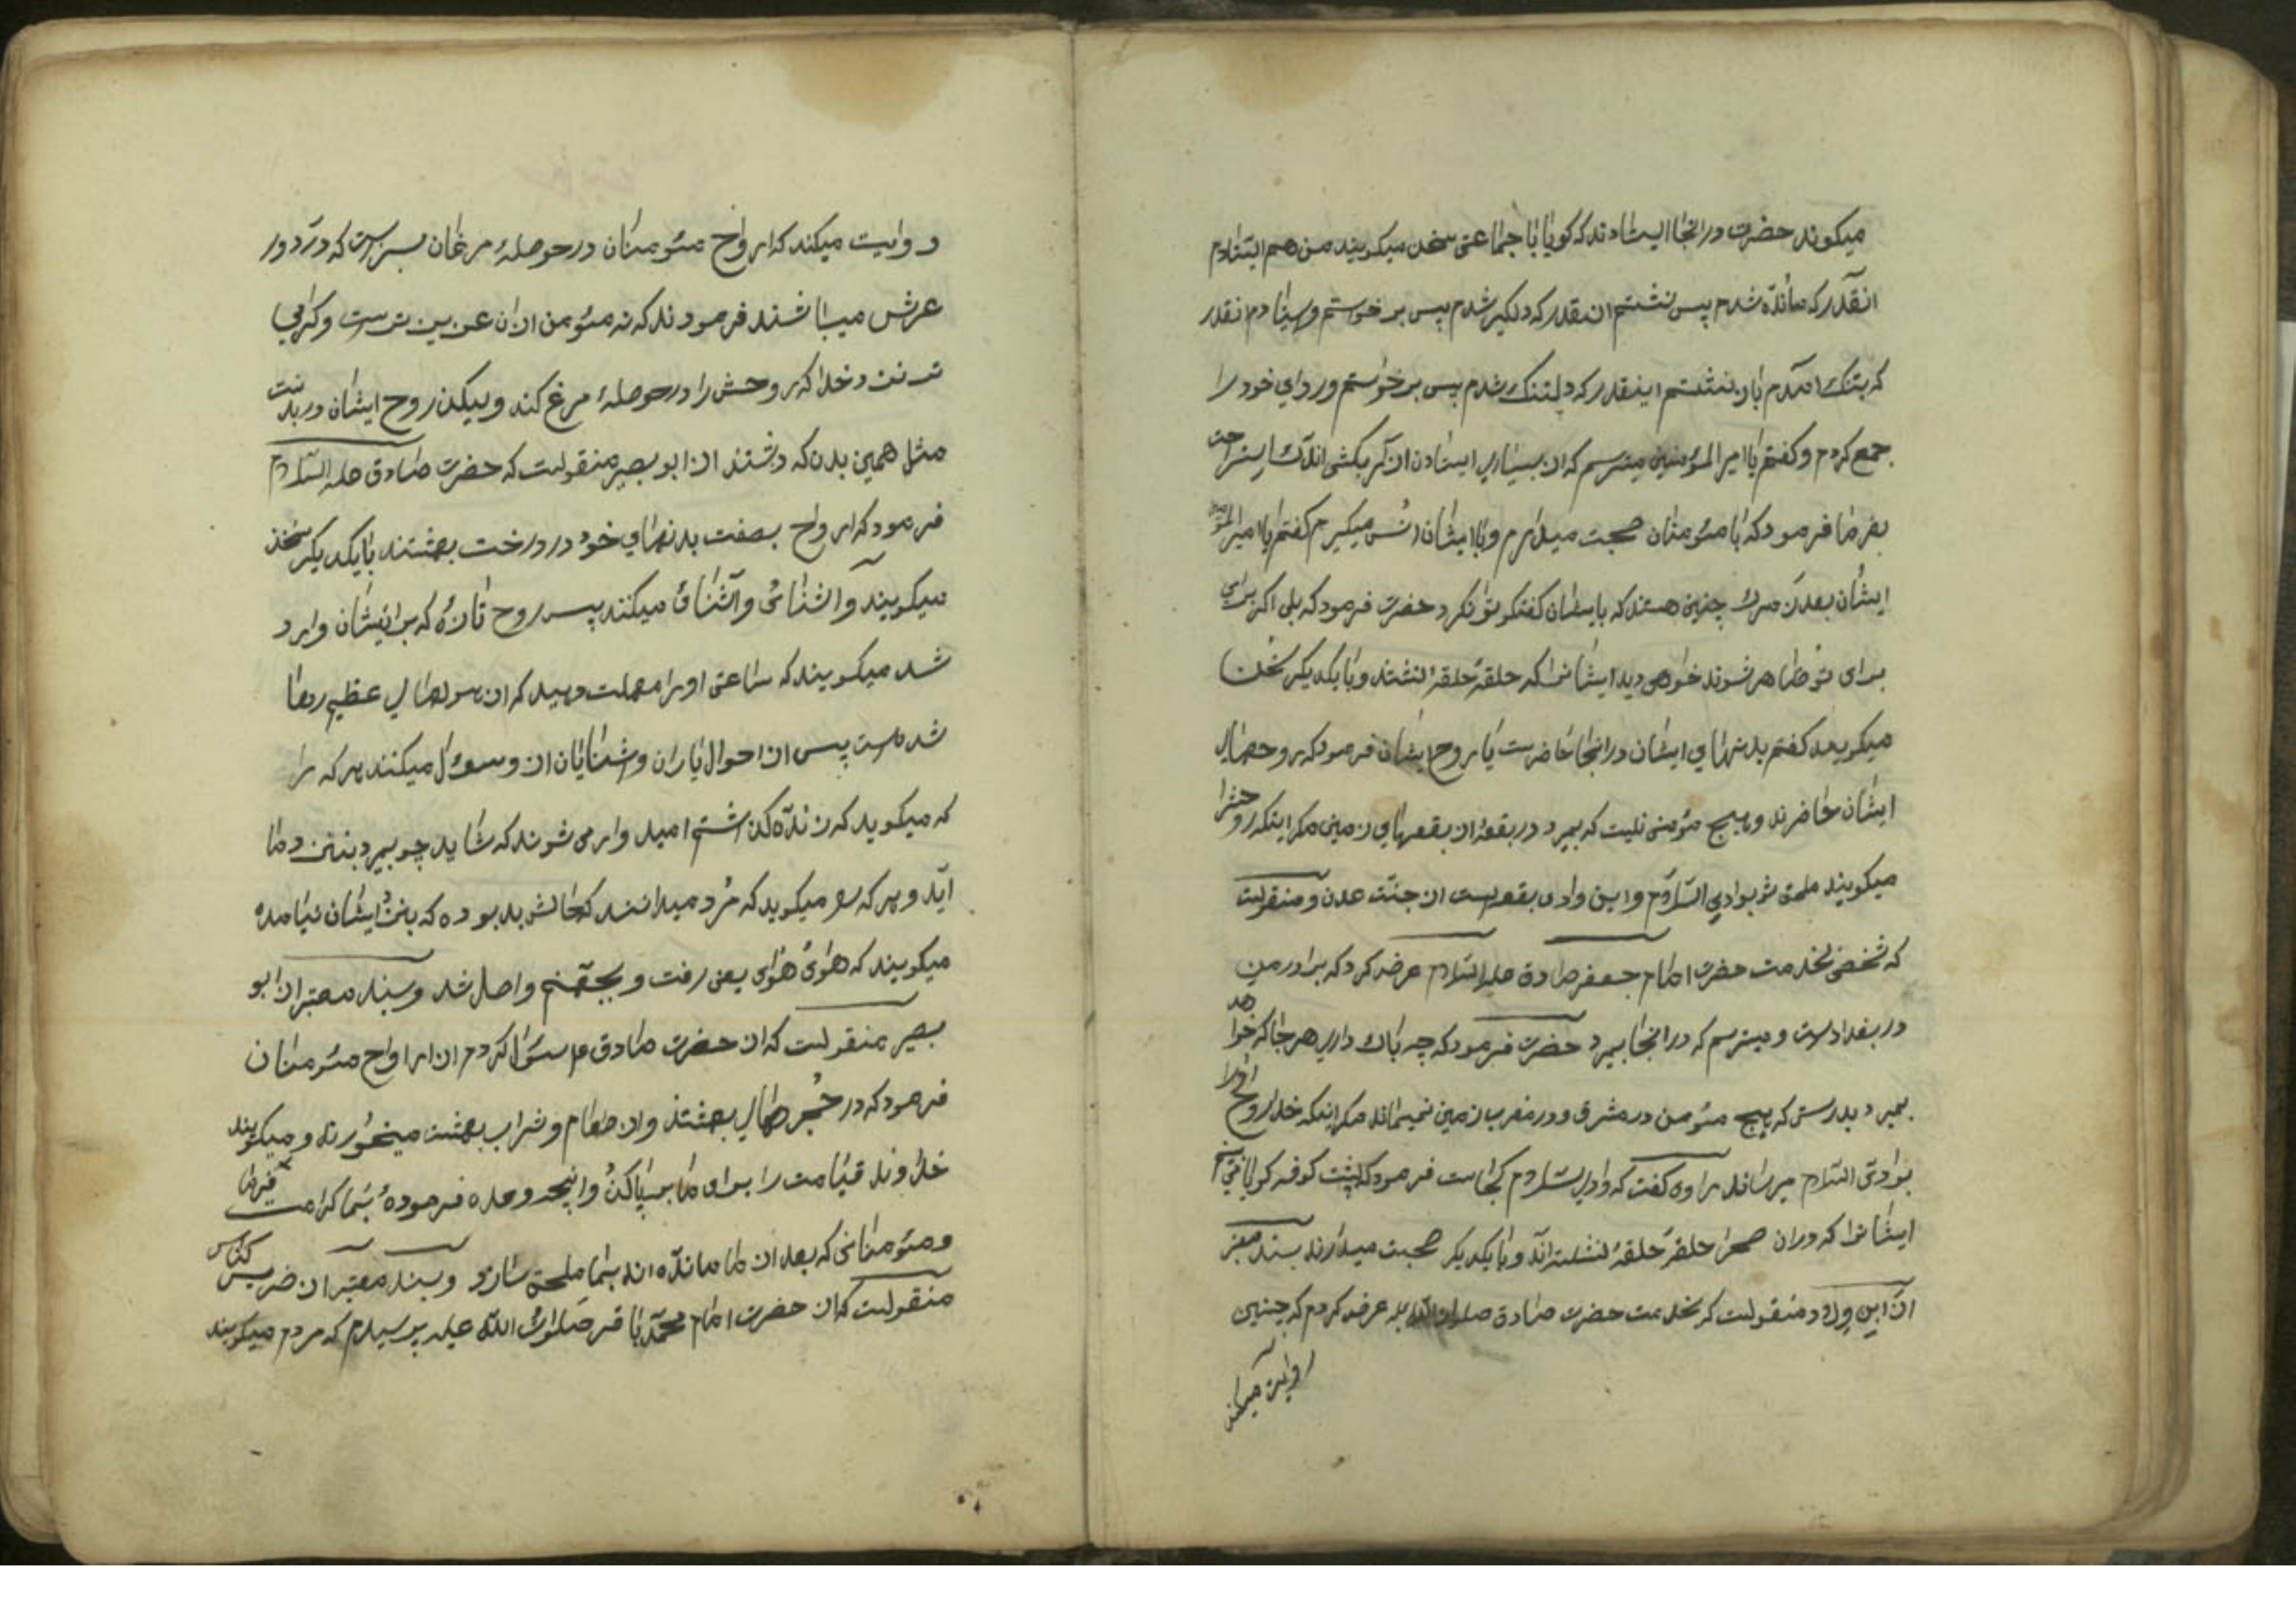 میکوند حضرت درانجا ایستادند که کویا با جماعتی سخن میکویند من هم ایستادم
انقدر که مانده شدم پس نشستم ان مقدر که دلکیر شدم پس برخواستم و ایستادم انقدر
که بتنک امدم باز نشستم اینقدر که دلتنک شدم پس برخواستم و ردای خود را
جمع کردم و کفتم یا امیر المؤمنین میترسم که از بسیاری ایستادن ازار بکشی اندک استراحت
بفرما فرمود که با مئومنان صحبت میدارم و با ایشان انس میکیرم کفتم یا امیر المؤمنین
ایشان بعد از مرک چنین هستند که بایشان کفتکو توان کرد حضرت فرمود که بلی اکر برای
برای تو ظاهر شوند خواهی دید ایشانرا که حلقه حلقه نشستند و با یکدیکر سخن
میکویند کفتم بدنهای ایشان درانجا حاضرست یا روح ایشان فرمود که روحهای
ایشان حاضرند و هیچ مؤمنی نیست که بمیرد در بقعه از بقعهای زمین مکر اینکه روحشرا
میکویند ملحق شو بوادی السلام و این وادی بقعه‌ایست از جنت عدن و منقولست
که شخصی بخدمت حضرت امام جعفر صادق علیه السلام عرض کرد که برادر من
در بغدادست و میترسم که درانجا بمیرد حضرت فرمود که چه باک داری هرجا که خواهد
بمیرد بدرستی که هیچ مئومن در مشرق و در مغرب زمین نمیماند مکر اینکه خدا روح اورا
بوادی السلام میرساند راوی کفت که وادی السلام کجاست فرمود که پشت کوفه کویا می بینم
ایشانرا که دران صحرا حلقه حلقه نشسته اند و با یکدیکر صحبت میدارند بسند معتبر
از ابن ولاد منقولست که بخدمت حضرت صادق صلوات الله علیه عرض کردم که چنین
روایت میکنند
روایت میکند که ارواح مئومنان در حوصلهٔ مرغان سبزست که در دور
عرش میباشند فرمودند که نه مئومن ازان عزیزترست و کرامی
ترنزد خدا که روحش را در حوصلهٔ مرغ کند ولیکن روح ایشان در بدنیست
مثل همین بدن که داشتند از ابو بصیر منقولست که حضرت صادق علیه السلام
فرمود که ارواح بصفت بدنهای خود در درخت بهشتند با یکدیکر سخن
میکویند و اشنائی و آشنائی میکنند پس روح تازهٔ که برایشان وارد
شد میکویند که ساعتی اورا مهلت دهید که از هولهای عظیم رها
شده‌ست پس از احوال یاران و اشنایان از و سوال میکنند هرکه را
که میکوید که زنده کذاشتم امیدوار می شوند که شاید چو بمیرد بنزد ما
آید و هرکه را میکوید که مرد میدانند که حالش بد بوده که بنزد ایشان نیامده
میکویند که هوی هوی یعنی رفت و بجهنم واصل شد و بسند معتبر از ابو
بصیر منقولست که از حضرت صادق ع سئوال کردم از ارواح مئومنان
فرمود که در حجرهای بهشتند و از طعام و شراب بهشت میخورند و میکویند
خداوند قیامت را برای ما بر پا کن وانچه وعده فرمودهٔ بما کرامت فرما
و مئومنانی که بعد از ما مانده اند بما ملحق ساز و بسند معتبر از ضریس کناسی
منقولست که از حضرت امام محمد باقر صلوات الله علیه پرسیدم که مردم میکویند